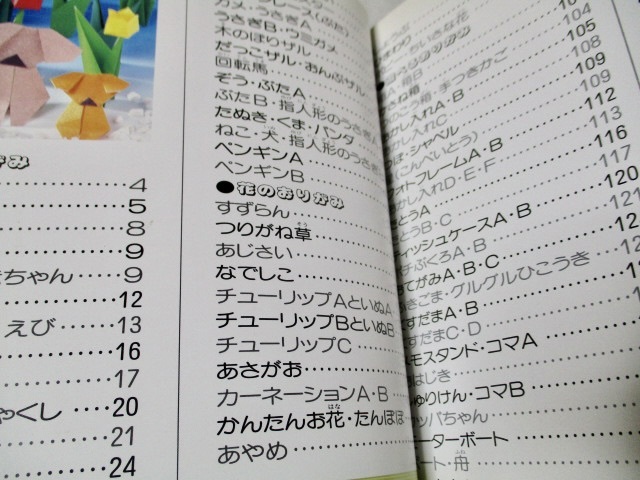 がみ
4
5
8
9
ちゃん 9
12
えび 13
16
17
ゃくし 20
21
24
カメ・うさぎA
うさぎB・ウミガメ
木のぼりザル
だっこザル・おんぶザル
回転馬
ぞう・ぶたA
ぶたB・指人形のうさぎA
たぬき・くま・パンダ
ねこ・犬・指人形のうさぎ
ペンギンA
ペンギンB
●花のおりがみ
すずらん
つりがね草
そう
あじさい
なでしこ
チューリップAといぬA
チューリップBといぬB
チューリップC
あさがお
カーネーションA・B
かんたんお花・たんぽぽ
はな
あやめ
ちいさな花
104
105
106
108
109
手つきかご 109
かし入れA・B 112
かし入れC
・シャベル 116
(こんぺいとう)
ォトフレームA・B 117
かし入れD・E・F
とうA 120
とうB・C
ィッシュケースA・B 121
チぶくろA・B
てがみA・B・C
きごま・グルグルひこうき
すだまA・B
すだまC・D
モスタンド・コマA
はじき
ゅりけん・コマB
ッパちゃん
ーターボート
ボート・舟